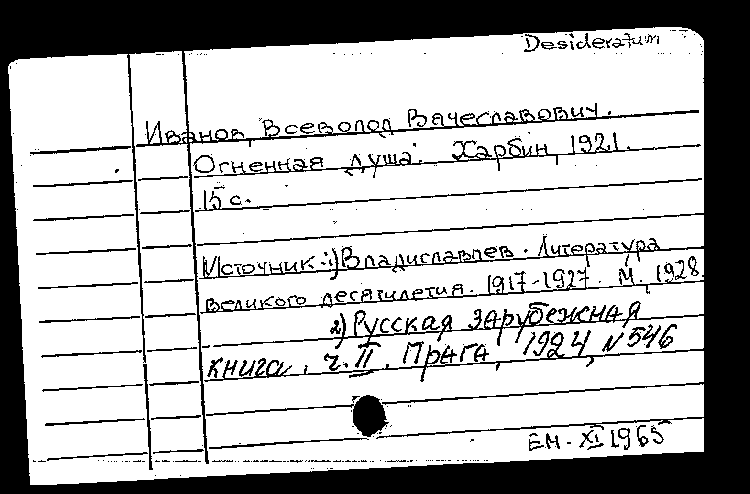 Desideratum
Иванов, Всеволод Вячеславович.
Огненная душа. Харбин, 1921.
15 с.
Источник: 1) Владиславлев. Литература
великого десятилетия. 1917-1927. М., 1928.
2) Русская зарубежная
книга. ч. II. Прага, 1924, № 546
ЕМ - XI 1965